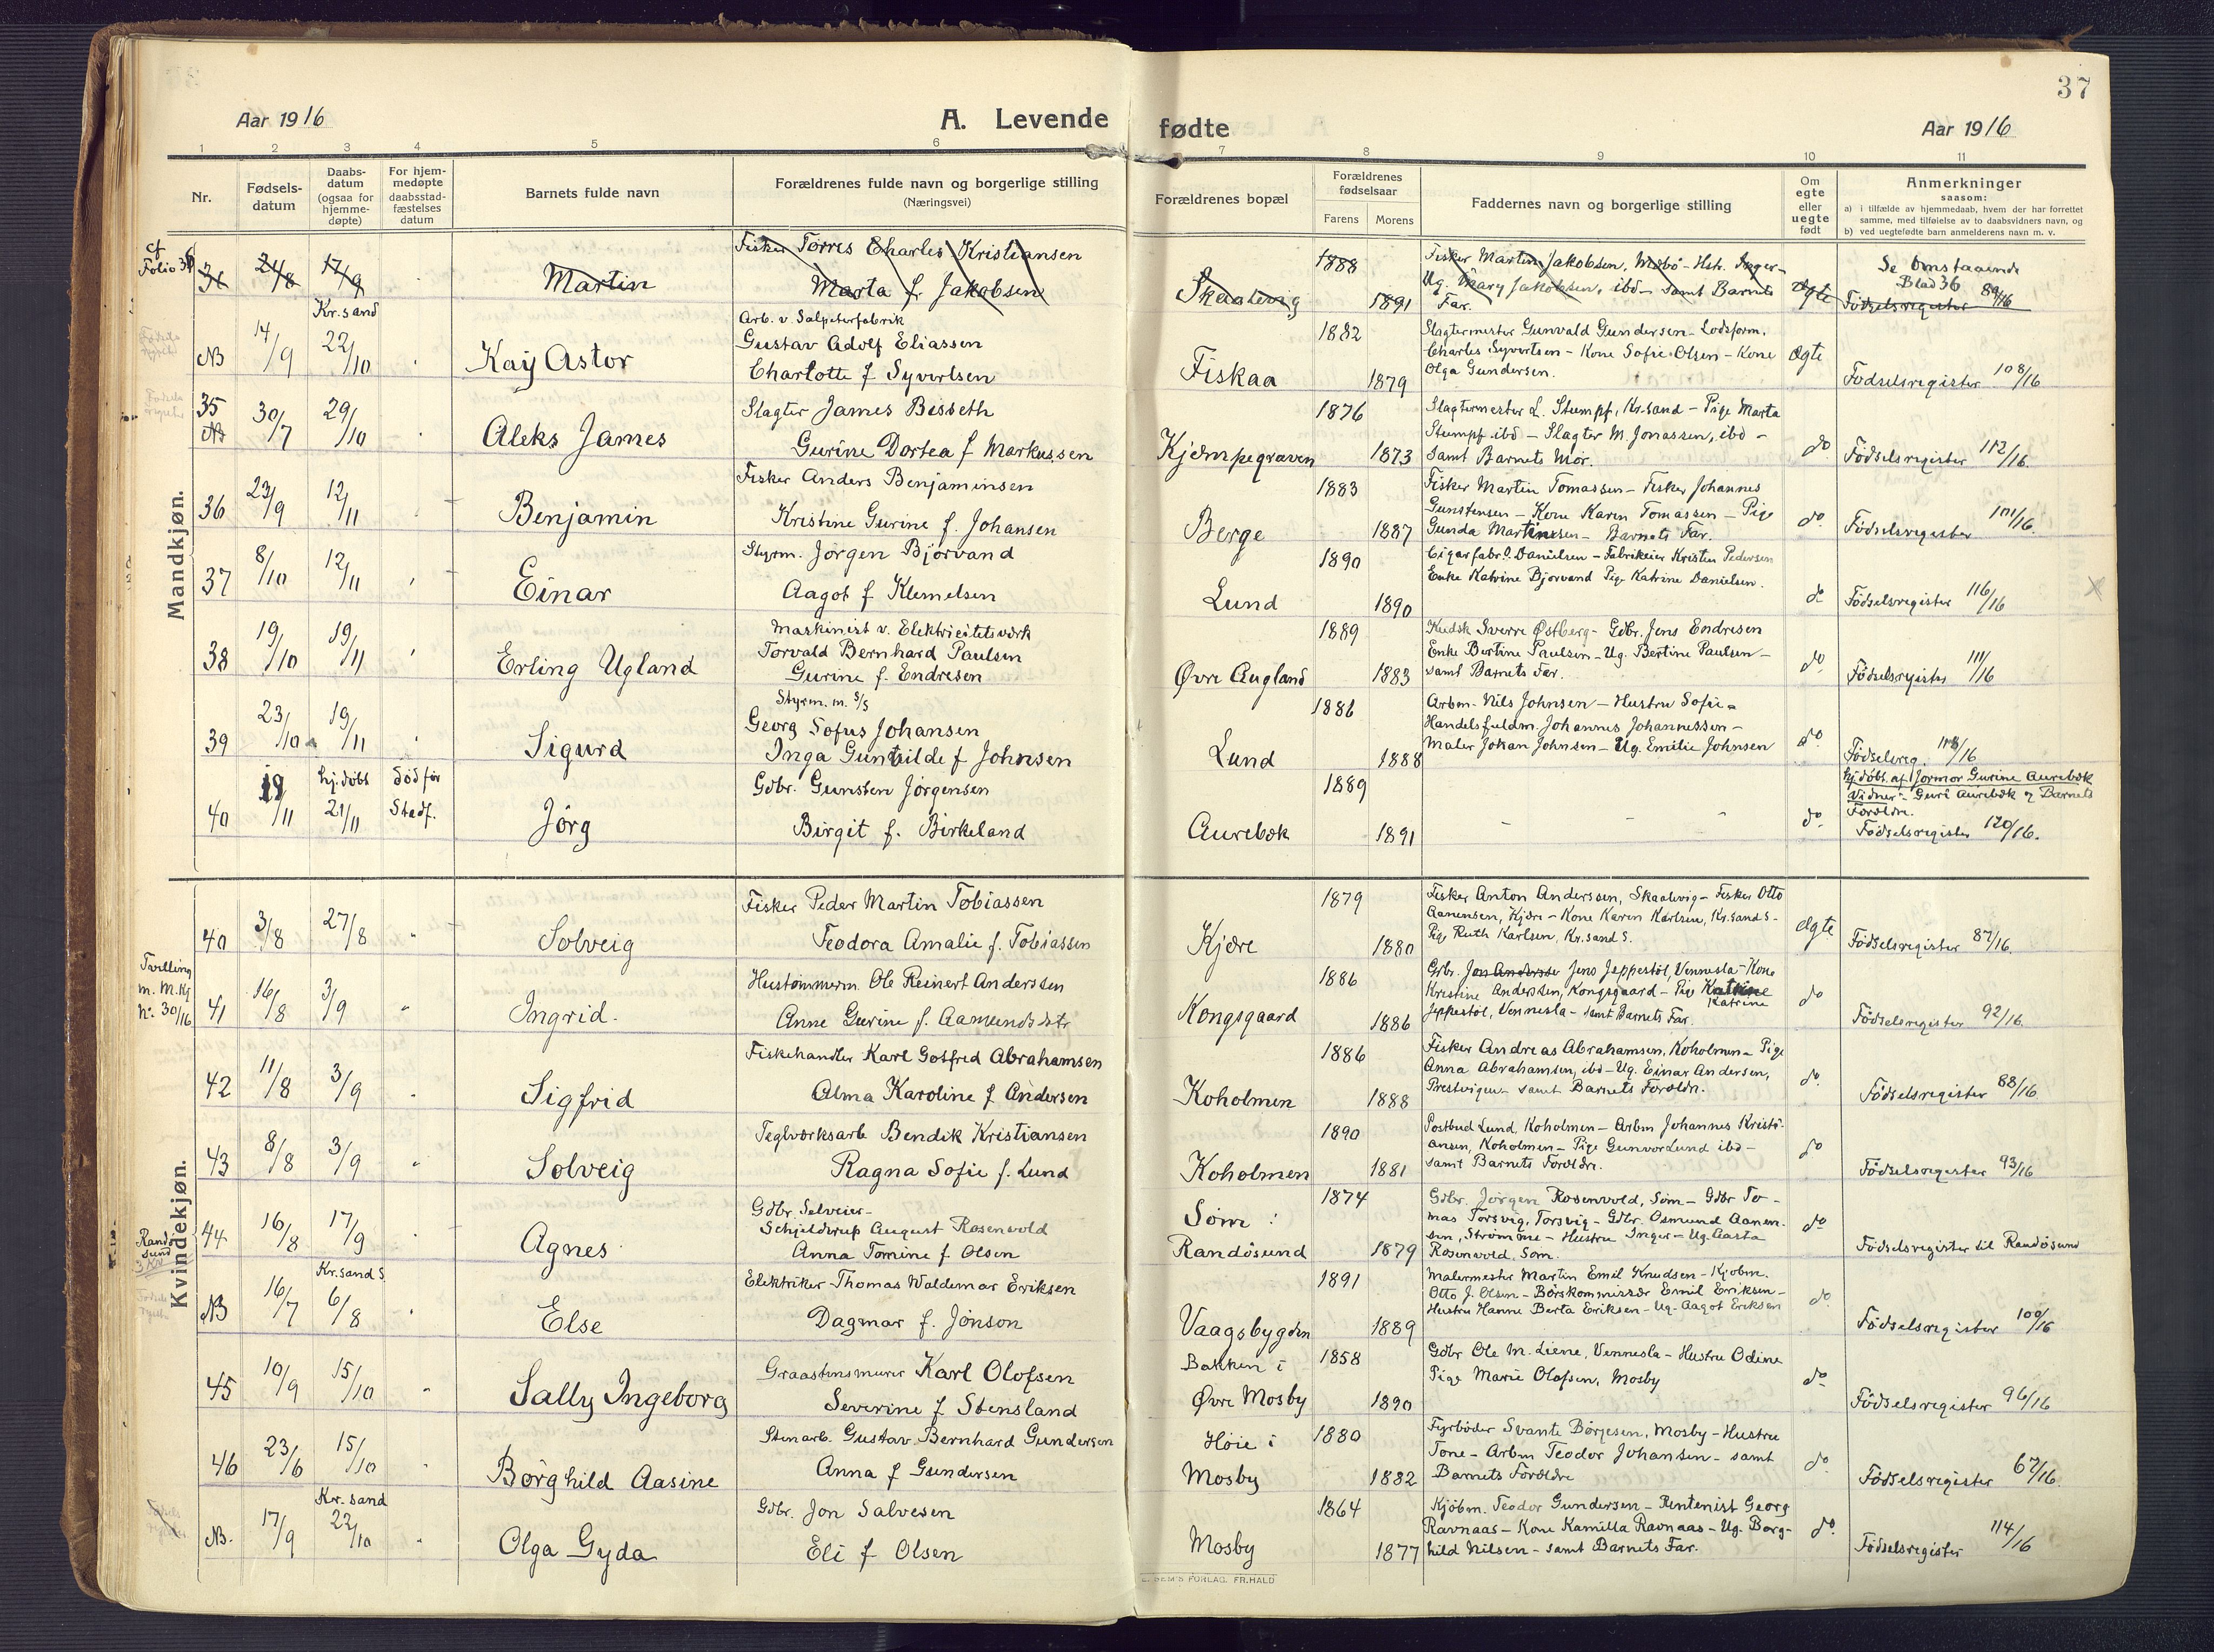 37
Aar 1916
A. Levende
fødte
Aar 1916
1 2 3 4 5 6 7 8 9 10 11
Nr.
Fødsels-
datum
Daabs-
datum
(ogsaa for
hjemme-
døpte)
For hjem-
medøpte
daabsstad-
fæstelses
datum
Barnets fulde navn
Forældrenes fulde navn og borgerlige stilling
(Næringsvei)
Forældrenes bopæl
Forældrenes
fødselsaar
Farens Morens
Faddernes navn og borgerlige stilling
Om
egte
eller
uegte
født
Anmerkninger
saasom:
a) i tilfælde av hjemmedaab, hvem der har forrettet
samme, med tilføielse av to daabsvidners navn, og
b) ved uegtefødte barn anmelderens navn m. v.
Mandkjøn.
cf
Folio 36
24/8 17/9
Martin
Fisker Torris Charles Kristiansen
Marta f. Jakobsen
Skaalevig
1888
1891
Fisker Martin Jakobsen, - Hstr. Inger -
Ug. Mary Jakobsen, ibd - samt Barnets
Far.
ægte
Se omstaaende
Blad 36
Fødselsregister 89/16
NB 14/9
Kr.sand
22/10
Kay Astor
Arb. v. Salpeterfabrik
Gustav Adolf Eliassen
Charlotte f Syvertsen
Fiskaa
1882
1879
Slagtermester Gunvald Gundersen - Lodsform.
Charles Syvertsen - Kone Sofie Olsen - Kone
Olga Gundersen.
ægte
Fødselsregister 108/16
35
NB
30/7 29/10
Aleks James
Slagter James Bisseth
Gurine Dortea f Markussen
Kjæmpegraven
1876
1873
Slagtermester L. Stumpf, Kr.sand - Pige Marta
Stumpf ibd - Slagter M. Jonassen, ibd -
samt Barnets Mor.
do
Fødselsregister 112/16.
36 23/9 12/11
Benjamin
Fisker Anders Benjaminsen
Kristine Gurine f. Johansen
Berge
1883
1887
Fisker Martin Tomassen - Fisker Johannes
Gunstensen - Kone Karen Tomassen - Pige
Gunda Martinsen - Barnets Far.
do
Fødselsregister 101/16.
37 8/10 12/11
Einar
Styrm. Jørgen Bjorvand
Aagot f Klemelsen
Lund
1890
1890
Cigarfabr. Danielsen - Fabrikeier Kristen Pedersen
Enke Katrine Bjorvand Pige Katrine Danielsen.
do
Fødselsregister 116/16
38 19/10 19/11
Erling Ugland
Maskinist v. Elektricitetsværk
Torvald Bernhard Paulsen
Gurine f. Endresen
Øvre Augland
1889
1883
Kudsk Sverre Østberg - Gdbr. Jens Endresen
Enke Bertine Paulsen - Ug. Bertine Paulsen -
samt Barnets Far.
do
Fødselsregister 111/16
39 23/10 19/11
Sigurd
Styrm. m. S/S
Georg Sofus Johansen
Inga Gunhilde f Johnsen
Lund
1886
1888
Arbm. Nils Johnsen - Hustru Sofie -
Handelsfuldm. Johannes Johannessen -
Maler Johan Johnsen - Ug. Emilie Johnsen
do
Fødselsreg. 118/16
40 19/11
hj.døbt
21/11
Død før
Stadf.
Jørg
Gdbr. Gunsten Jørgensen
Birgit f. Birkeland
Aurebæk
1889
1891
do
hj.døbt af Jormor Gurine Aurebæk
Vidner: Guri Aurebæk og Barnets
Forældre.
Fødselsregister 120/16.
Kvindekjøn.
40 3/8 27/8
Solveig
Fisker Peder Martin Tobiassen
Teodora Amalie f. Tobiassen
Kjære
1879
1880
Fisker Anton Anderssen, Skaalevig - Fisker Otto
Aanensen, Kjære - Kone Karen Karlsen, Kr.sand S -
Pige Ruth Karlsen, Kr.sand S.
ægte
Fødselsregister 87/16.
Tvilling
m. M.Kj
Nr. 30/16
41 16/8 3/9
Ingrid.
Hustømmerm. Ole Reinert Anderssen
Anne Gurine f. Aamundsdtr
Kongsgaard
1886
1886
Gdbr. Jon Anderssen Jens Jeppestøl, Vennesla - Kone
Kristine Anderssen, Kongsgaard - Pige Katrine
Katrine
Jeppestøl, Vennesla - samt Barnets Far.
do
Fødselsregister 92/16.
42 11/8 3/9
Sigfrid
Fiskehandler Karl Gotfred Abrahamsen
Alma Karoline f Andersen
Koholmen
1886
1888
Fisker Andreas Abrahamsen, Koholmen - Pige
Anna Abrahamsen, ibd - Ug. Einar Andersen,
Prestvigen - samt Barnets Forældre.
do
Fødselsregister 88/16.
43 8/8 3/9
Solveig
Teglværksarb Bendik Kristiansen
Ragna Sofie f. Lund
Koholmen
1890
1881
Postbud Lund, Koholmen - Arbm Johannes Kristi-
ansen, Koholmen - Pige Gunvor Lund ibd -
samt Barnets Forældre.
do
Fødselsregister 93/16
Randø
sund
44 16/8 17/9
Agnes
Gdbr. Selveier -
Schjelderup August Rosenvold
Anna Tomine f. Olsen
Søm i
Randøsund
1874
1879
Gdbr. Jørgen Rosenvold, Søm - Gdbr To-
mas Torsvig, Torsvig - Gdbr. Osmund Aanen-
sen, Strømme - Hustru Inger - Ug. Aasta
Rosenvold, Søm.
do
Fødselsregister til Randøsund
NB 16/7
Kr.sand S
6/8
Else
Elektriker Thomas Waldemar Eriksen
Dagmar f. Jonson
Vaagsbygden
1891
1889
Malermester Martin Emil Knudsen - Kjøbm.
Otto J. Olsen - Børskommissær Emil Eriksen -
Hustru Hanne Berta Eriksen - Ug. Aagot Eriksen
do
Fødselsregister 100/16
45 10/9 15/10
Sally Ingeborg
Graastensmurer Karl Olofsen
Severine f Stensland
Bakken i
Øvre Mosby
1858
1890
Gdbr Ole M. Liene, Vennesla - Hustru Odine
Pige Marie Olofsen, Mosby
do
Fødselsregister 96/16
46 23/6 15/10
Borghild Aasine
Stenarb. Gustav Bernhard Gundersen
Anna f Gundersen
Høie i
Mosby
1880
1882
Fyrbøder Svante Børjesen, Mosby - Hustru
Tone - Arbm Teodor Johansen - samt
Barnets Forældre
do
Fødselsregister 67/16.
NB. 17/9
Kr. sand
22/10
Olga Gyda
Gdbr. Jon Salvesen
Eli f Olsen
Mosby
1864
1877
Kjøbm. Teodor Gundersen - Rentenist Georg
Ravnaas - Kone Kamilla Ravnaas - Ug. Borg-
hild Nilsen - samt Barnets Far.
do
Fødselsregister 114/16
SEM'S FORLAG. FR.HALD